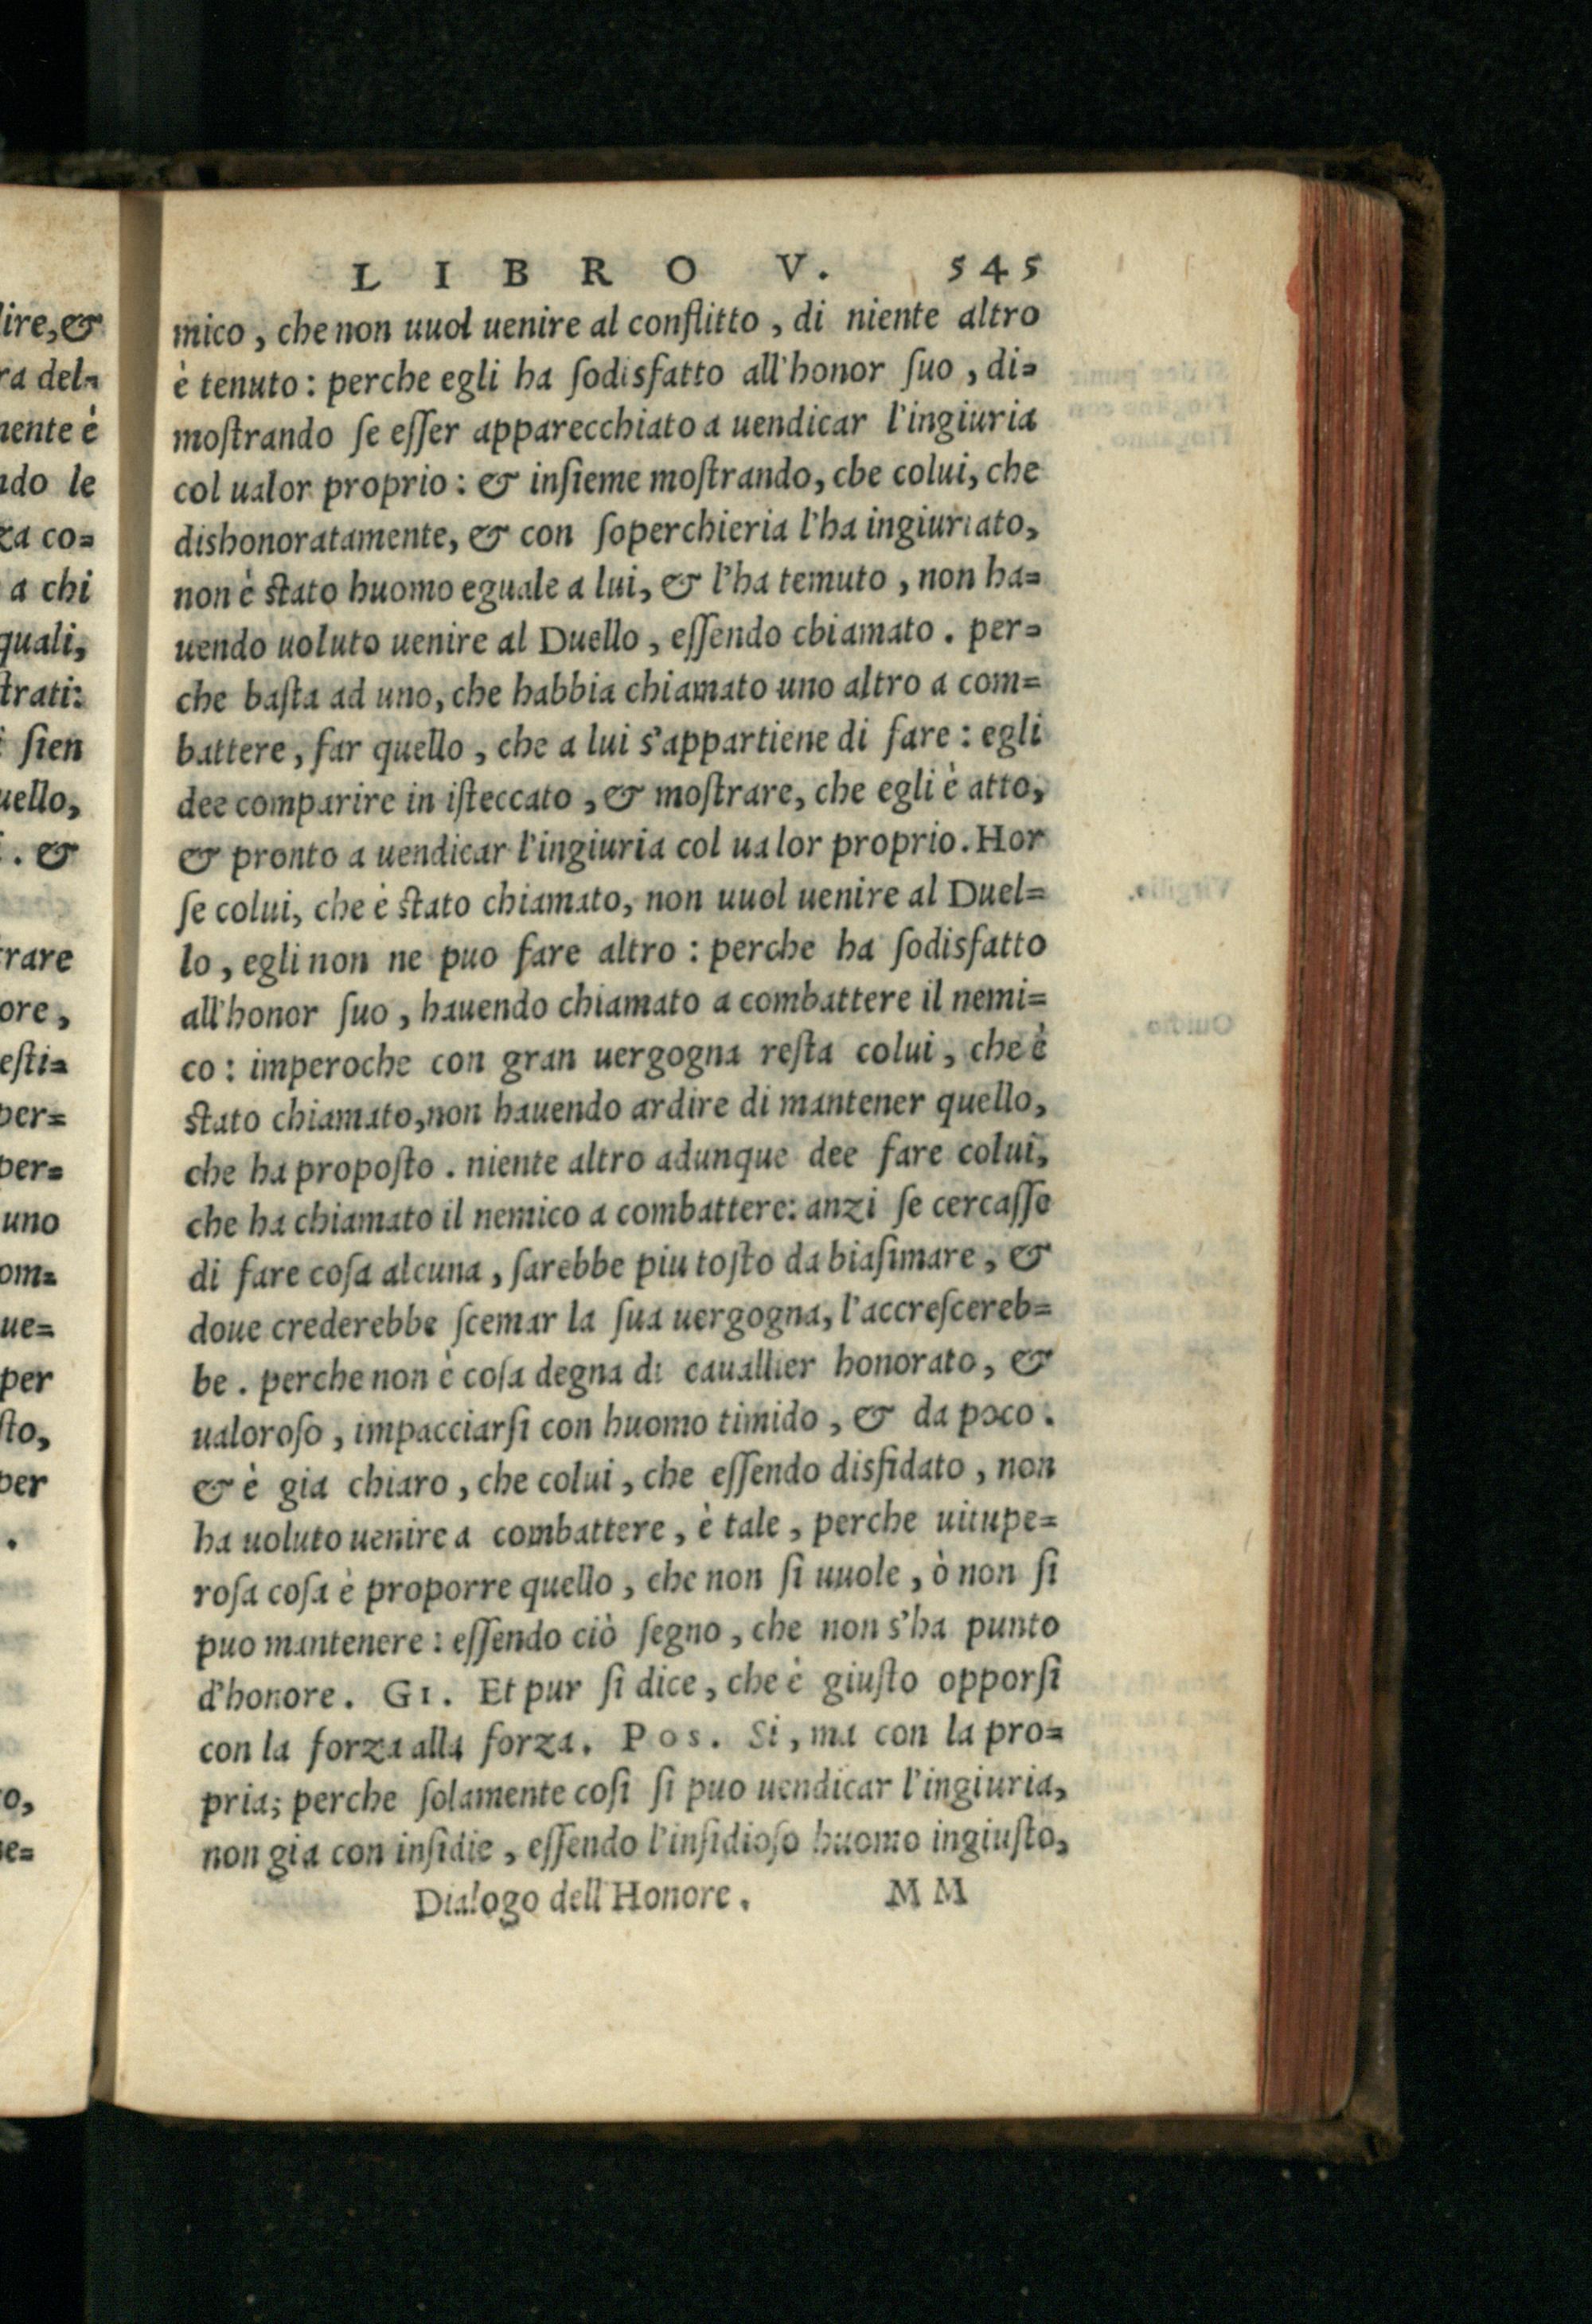 LIBRO V. 545
mico, che non uuol uenire al conflitto, di niente altro
è tenuto: perche egli ha ſodisfatto all'honor ſuo, di=
moſtrando ſe eſſer apparecchiato a uendicar l'ingiuria
col ualor proprio: & inſieme moſtrando, che colui, che
dishonoratamente, & con ſoperchieria l'ha ingiuriato,
non è ſtato huomo eguale a lui, & l'ha temuto, non ha=
uendo uoluto uenire al Duello, eſſendo chiamato. per=
che baſta ad uno, che habbia chiamato uno altro a com=
battere, far quello, che a lui s'appartiene di fare: egli
dee comparire in iſteccato, & moſtrare, che egli è atto,
& pronto a uendicar l'ingiuria col ualor proprio. Hor
ſe colui, che è ſtato chiamato, non uuol uenire al Duel=
lo, egli non ne puo fare altro: perche ha ſodisfatto
all'honor ſuo, hauendo chiamato a combattere il nemi=
co: imperoche con gran uergogna reſta colui, che è
ſtato chiamato, non hauendo ardire di mantener quello,
che ha propoſto. niente altro adunque dee fare colui,
che ha chiamato il nemico a combattere: anzi ſe cercaſſe
di fare coſa alcuna, ſarebbe piu toſto da biaſimare, &
doue crederebbe ſcemar la ſua uergogna, l'accreſcereb=
be. perche non è coſa degna di cauallier honorato, &
ualoroſo, impacciarſi con huomo timido, & da poco.
& è gia chiaro, che colui, che eſſendo disfidato, non
ha uoluto uenire a combattere, è tale, perche uitupe=
roſa coſa è proporre quello, che non ſi uuole, ò non ſi
puo mantenere: eſſendo ciò ſegno, che non s'ha punto
d'honore. GI. Et pur ſi dice, che è giuſto opporſi
con la forza alla forza. Pos. Si, ma con la pro=
pria; perche ſolamente coſi ſi puo uendicar l'ingiuria,
non gia con inſidie, eſſendo l'inſidioſo huomo ingiuſto,
Dialogo dell'Honore. MM